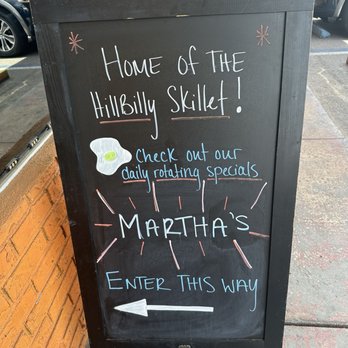 Home of the
HillBilly Skillet!
Check out our
daily rotating specials
Martha's
Enter this way